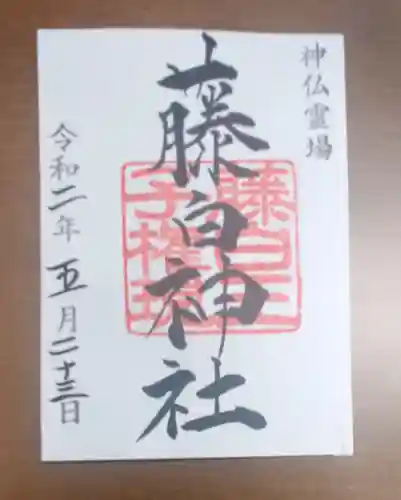 神仏霊場
藤白神社
藤白王子権現
令和二年五月二十三日